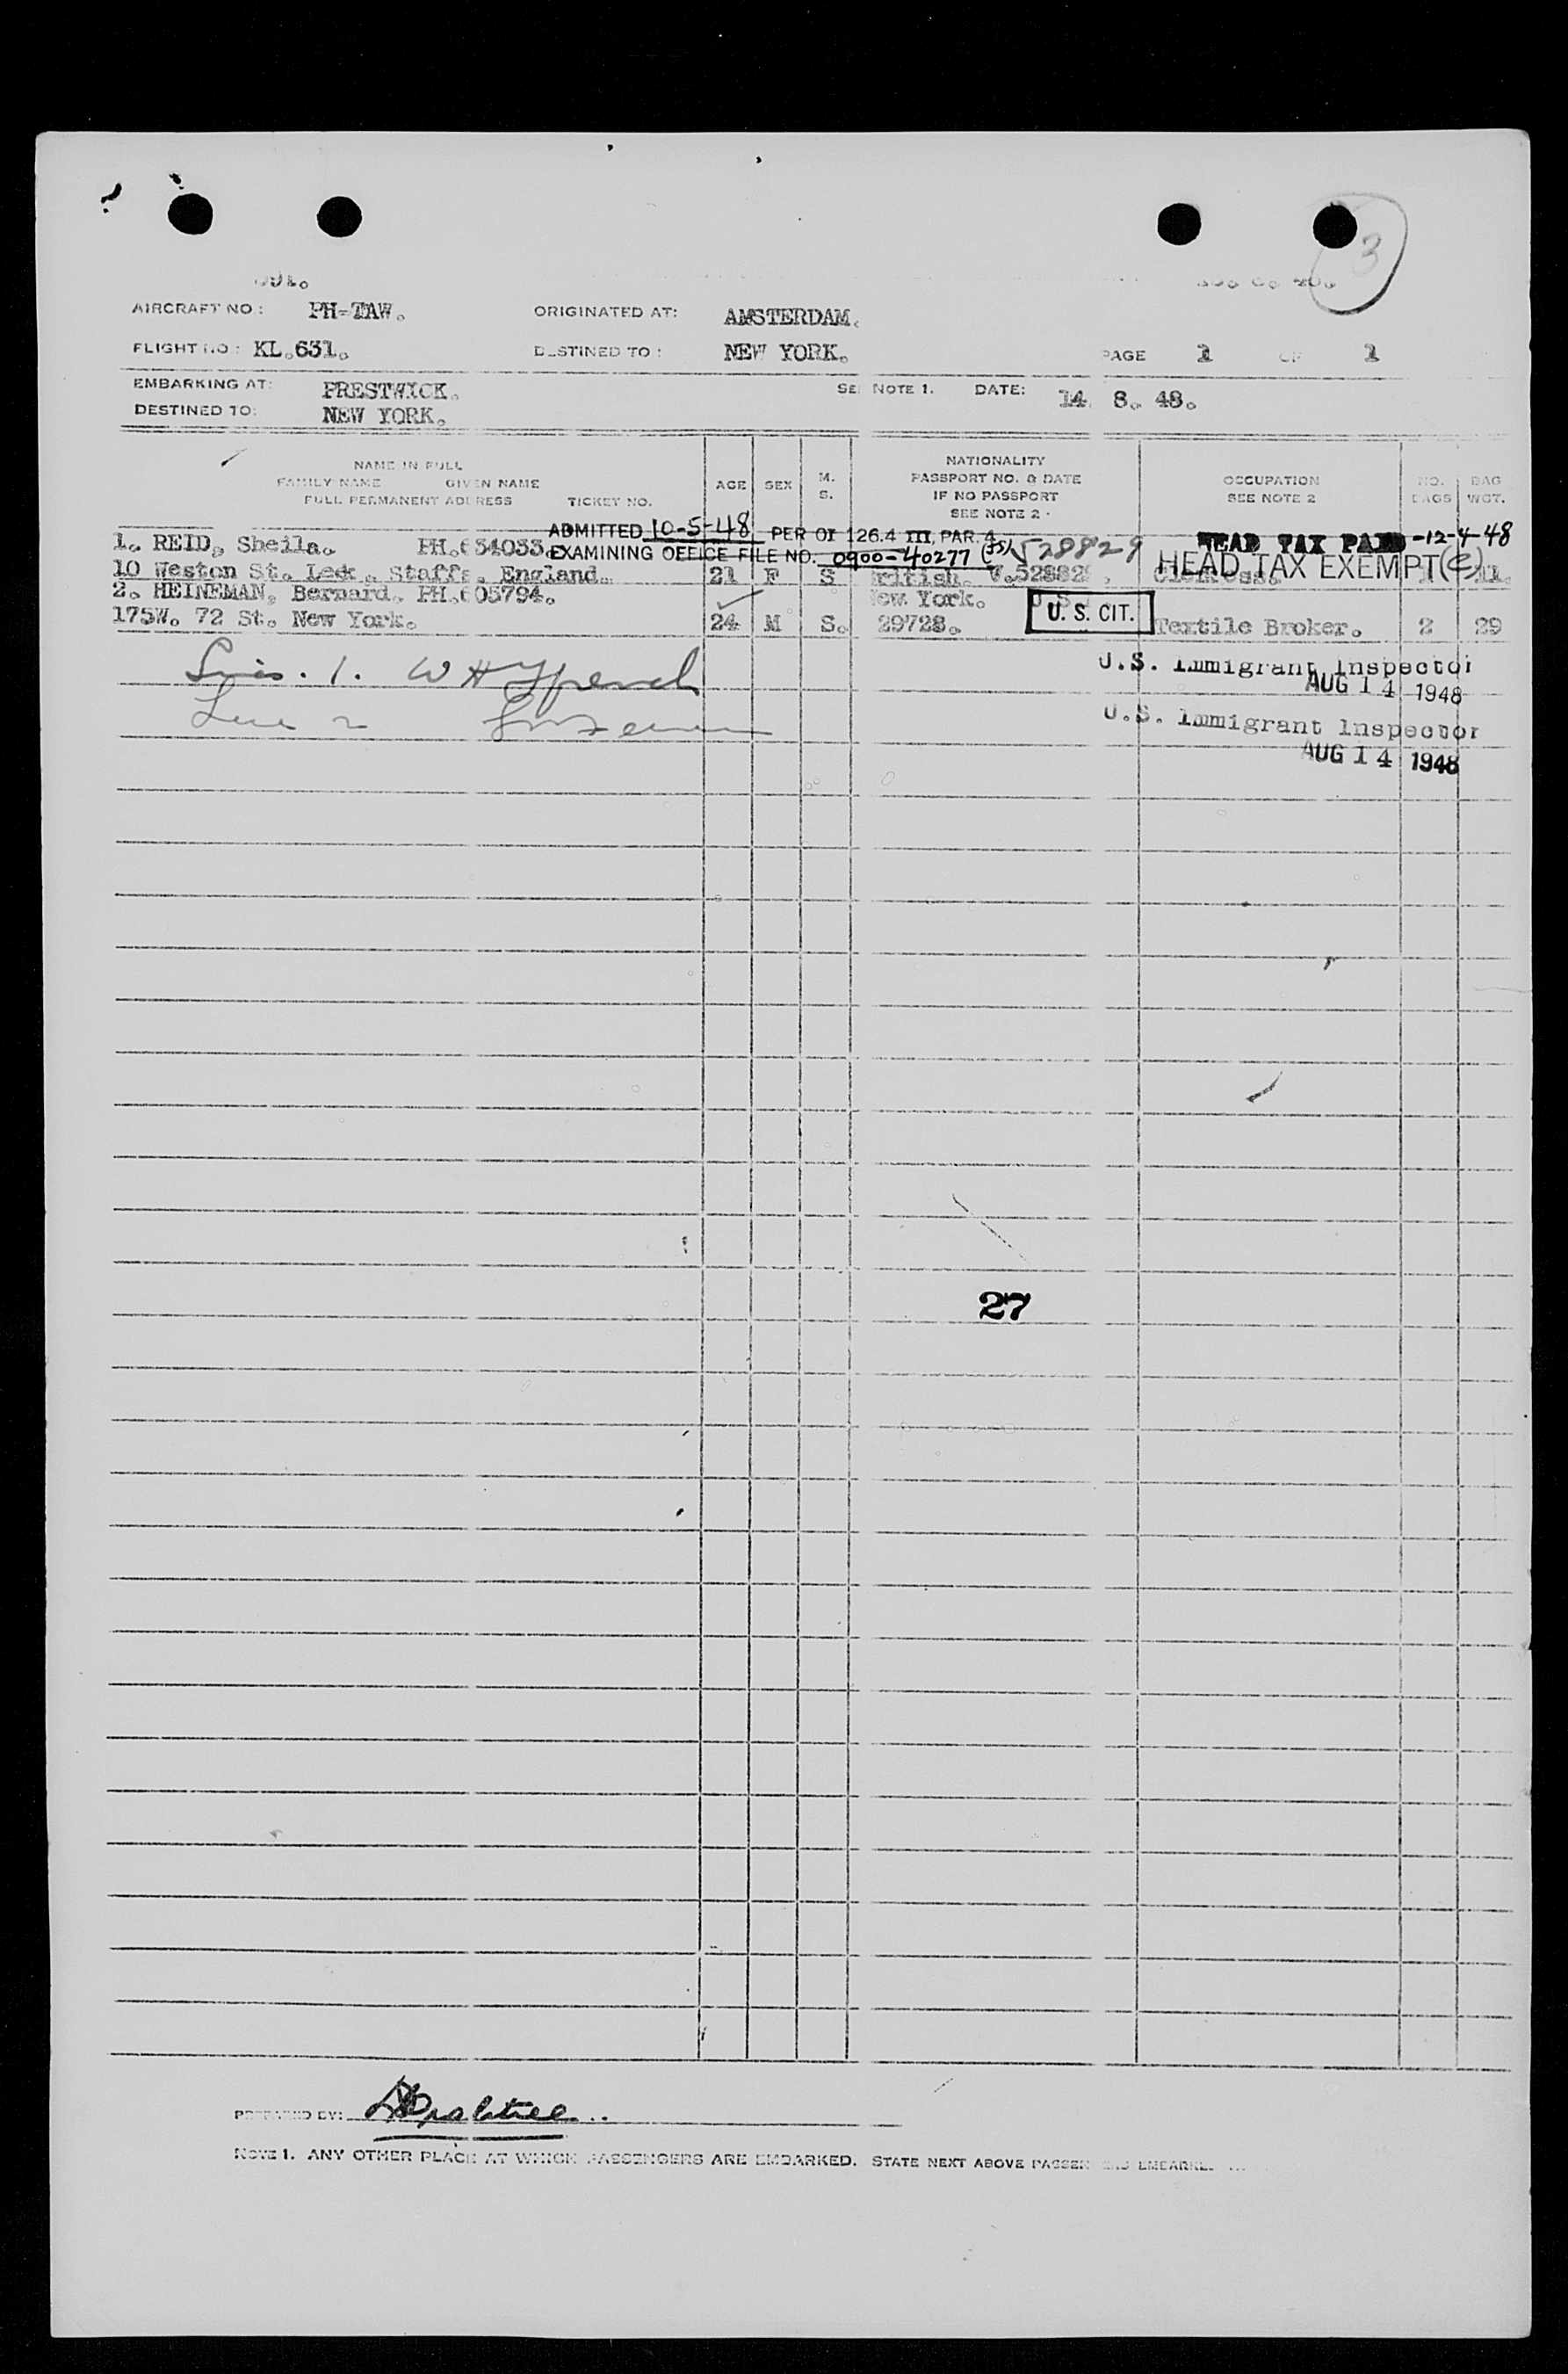 3
AIRCRAFT NO: PH-TAW. ORIGINATED AT: AMSTERDAM.
FLIGHT NO: KL.631. DESTINED TO: NEW YORK. PAGE 1 OF 1
EMBARKING AT: PRESTWICK. SEE NOTE 1. DATE: 14 8. 48.
DESTINED TO: NEW YORK.
NAME IN FULL
FAMILY NAME GIVEN NAME
FULL PERMANENT ADDRESS TICKET NO.
AGE SEX M. S.
NATIONALITY
PASSPORT NO. & DATE
IF NO PASSPORT
SEE NOTE 2.
OCCUPATION
SEE NOTE 2
NO. BAGS
BAG WGT.
ADMITTED 10-5-48 PER OI 126.4 III, PAR. 4
EXAMINING OFFICE FILE NO. 0900-40277 528829
HEAD TAX PAID -12-4-48
HEAD TAX EXEMPT
1. REID, Sheila. PH.634033.
10 Weston St. Leek. Staffs. England. 21 F S British.
2. HEINEMAN, Bernard. PH.605794. New York. U. S. CIT.
175W. 72 St. New York. 24 M S. 29728. Textile Broker. 2 29
1. W H
U.S. Immigrant Inspector
AUG 14 1948
U.S. Immigrant Inspector
AUG 14 1948
27
PREPARED BY:
NOTE 1. ANY OTHER PLACE AT WHICH PASSENGERS ARE EMBARKED. STATE NEXT ABOVE